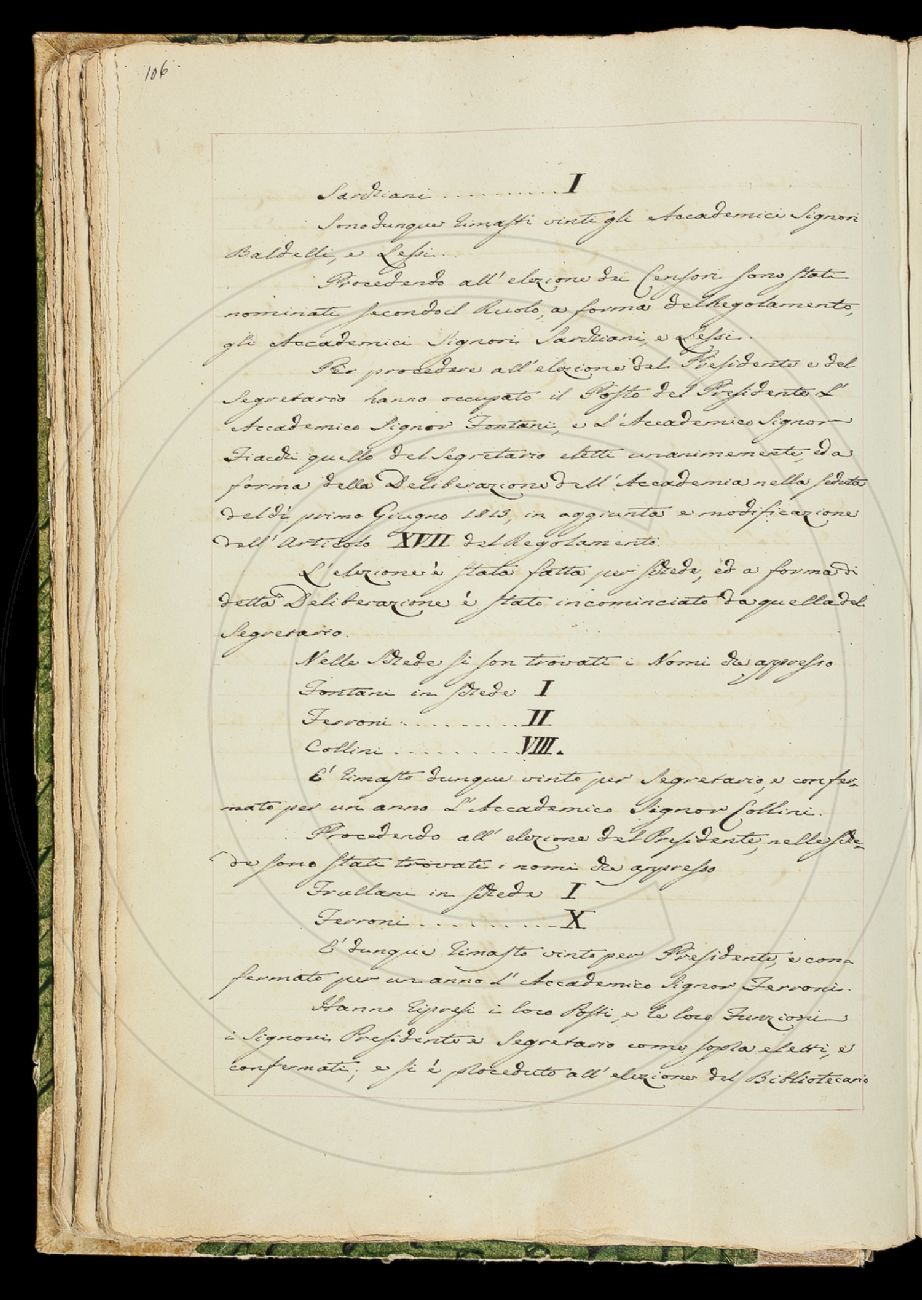 106
Sarchiani .......... I
Sono dunque rimasti vinti gli Accademici Signori
Baldelli, e Lessi.
Procedendo all' elezione dei Censori sono stati
nominati secondo il Ruolo, a forma del Regolamento,
gli Accademici Signori Sarchiani, e Lessi.
Per procedere all' elezione del Presidente e del
Segretario hanno occupato il Posto del Presidente L'
Accademico Signor Fontani, e L' Accademico Signor
Fiacchi quello del Segretario eletti unanimemente, ed a
forma della Deliberazione dell' Accademia nella seduta
del dì primo Giugno 1813, in aggiunta e modificazione
dell' Articolo XVII del Regolamento.
L' elezione è stata fatta per schede, ed a forma di
detta Deliberazione è stato incominciato da quella del
Segretario.
Nelle schede si son trovati i Nomi che appresso
Fontani in schede I
Ferroni .......... II
Collini .......... VIII.
E' rimasto dunque vinto per Segretario, e confer-
mato per un anno L' Accademico Signor Collini.
Procedendo all' elezione del Presidente, nelle sche-
de sono stati trovati i nomi che appresso
Frullani in schede I
Ferroni .......... X
E' dunque rimasto vinto per Presidente, e con-
fermato per un anno L' Accademico Signor Ferroni.
Hanno ripresi i loro Posti, e le loro Funzioni
i Signori Presidente e Segretario come sopra eletti, e
confermati; e si è proceduto all' elezione del Bibliotecario